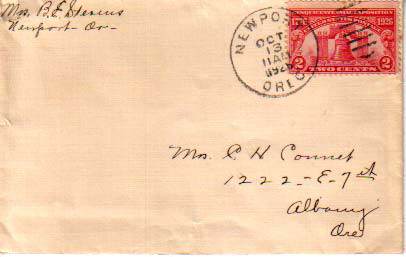 Mrs. B. E. Stevens
Newport - Or -
NEWPORT
OCT
13
11AM
1926
OREG.
SESQUICENTENNIAL EXPOSITION
1776 1926
2 TWO CENTS 2
Mrs. C H Connet
1222 - E - 7 st
Albany
Ore